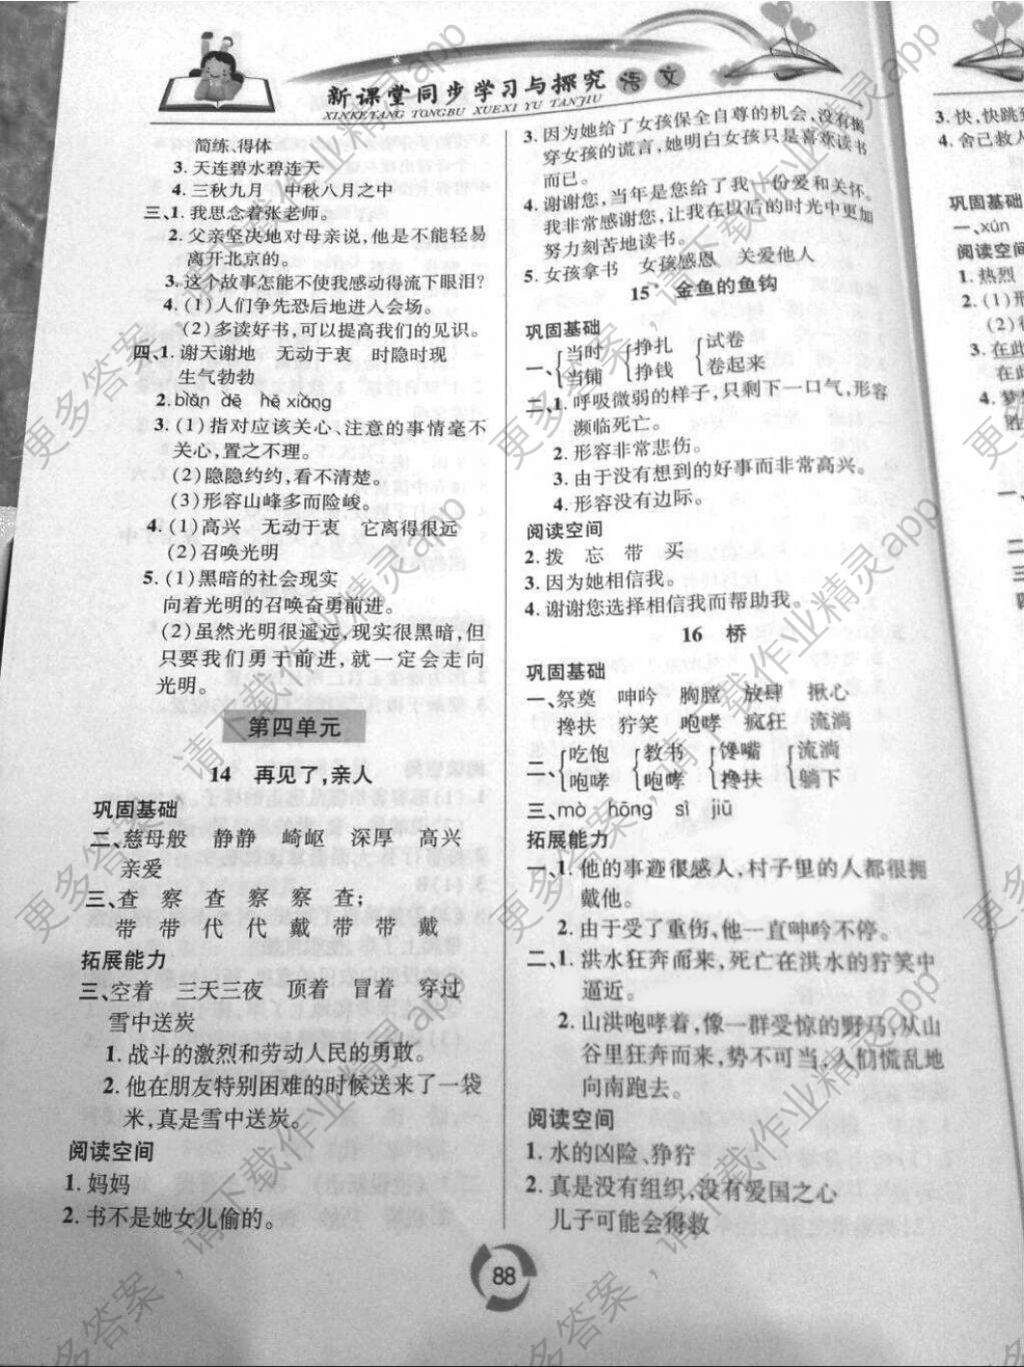 新课堂同步学习与探究 语文
XINKETANG TONGBU XUEXI YU TANJIU
简练、得体
3. 天连碧水碧连天
4. 三秋九月 中秋八月之中
三、1. 我思念着张老师。
2. 父亲坚决地对母亲说,他是不能轻易
离开北京的。
3. 这个故事怎能不使我感动得流下眼泪?
4. (1)人们争先恐后地进入会场。
(2)多读好书,可以提高我们的见识。
四、1. 谢天谢地 无动于衷 时隐时现
生气勃勃
2. biǎn dē hē xiǎng
3. (1)指对应该关心、注意的事情毫不
关心,置之不理。
(2)隐隐约约,看不清楚。
(3)形容山峰多而险峻。
4. (1)高兴 无动于衷 它离得很远
(2)召唤光明
5. (1)黑暗的社会现实
向着光明的召唤奋勇前进。
(2)虽然光明很遥远,现实很黑暗,但
只要我们勇于前进,就一定会走向
光明。
第四单元
14 再见了,亲人
巩固基础
二、慈母般 静静 崎岖 深厚 高兴
亲爱
三、查 察 查 察 察 查;
带 带 代 代 戴 带 带 戴
拓展能力
三、空着 三天三夜 顶着 冒着 穿过
雪中送炭
1. 战斗的激烈和劳动人民的勇敢。
2. 他在朋友特别困难的时候送来了一袋
米,真是雪中送炭。
阅读空间
1. 妈妈
2. 书不是她女儿偷的。
3. 因为她给了女孩保全自尊的机会,没有揭
穿女孩的谎言,她明白女孩只是喜欢读书
而已。
4. 谢谢您,当年是您给了我一份爱和关怀。
我非常感谢您,让我在以后的时光中更加
努力刻苦地读书。
5. 女孩拿书 女孩感恩 关爱他人
15* 金鱼的鱼钩
巩固基础
一、{当时 {挣扎 {试卷
当铺 挣钱 卷起来
二、1. 呼吸微弱的样子,只剩下一口气,形容
濒临死亡。
2. 形容非常悲伤。
3. 由于没有想到的好事而非常高兴。
4. 形容没有边际。
阅读空间
2. 拨 忘 带 买
3. 因为她相信我。
4. 谢谢您选择相信我而帮助我。
16 桥
巩固基础
一、祭奠 呻吟 胸膛 放肆 揪心
搀扶 狞笑 咆哮 疯狂 流淌
二、{吃饱 {教书 {馋嘴 {流淌
咆哮 咆哮 搀扶 躺下
三、mò hōng sì jiū
拓展能力
一、1. 他的事迹很感人,村子里的人都很拥
戴他。
2. 由于受了重伤,他一直呻吟不停。
二、1. 洪水狂奔而来,死亡在洪水的狞笑中
逼近。
2. 山洪咆哮着,像一群受惊的野马,从山
谷里狂奔而来,势不可当。人们慌乱地
向南跑去。
阅读空间
1. 水的凶险、狰狞
2. 真是没有组织、没有爱国之心
儿子可能会得救
88
3. 快,快跳到
4. 舍己救人
巩固基础
一、xún
阅读空间
1. 热烈
2. (1)形
(2)
3. 在此
在此
4. 梦
一、
二
三
四
更多答案,请下载作业精灵app